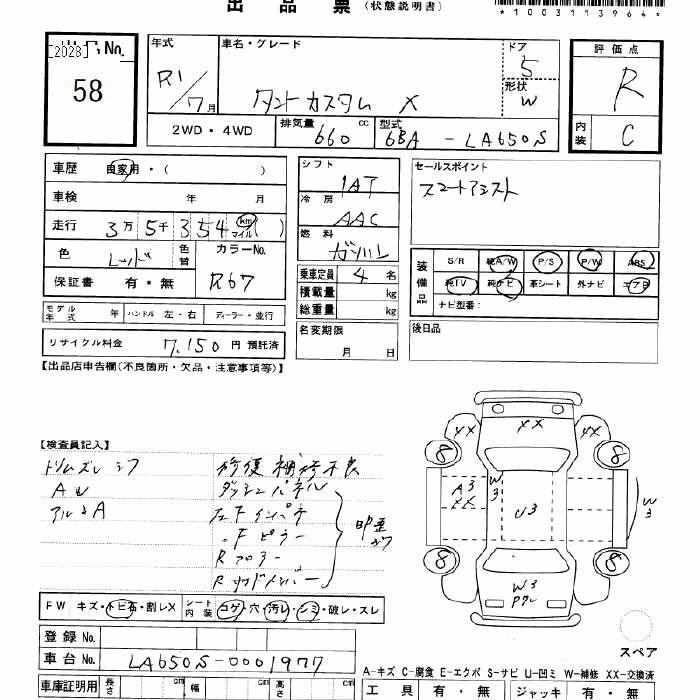 出品票 (状態説明書)
*1003113964*
出品No. [2028]
58
年式 R1/7月
車名・グレード タントカスタム X
ドア 5
形状 W
評価点 R
内装 C
2WD・4WD
排気量 660 cc
型式 6BA - LA650S
車歴 自家用・( )
車検 年 月
走行 3万5千354 km マイル ( )
色 レッド 色替
カラーNo. R67
保証書 有・無
シフト IAT
冷房 AAC
燃料 ガソリン
乗車定員 4 名
積載量 kg
総重量 kg
セールスポイント
スマートアシスト
装備品 S/R 純A/W P/S P/W ABS
純TV 純ナビ 革シート 外ナビ エアB
ナビ型番:
モデル年式 年 ハンドル 左・右 ディーラー・並行
名変期限 月 日
後日品
リサイクル料金 7,150 円 預託済
【出品店申告欄(不良箇所・欠品・注意事項等)】
【検査員記入】
修復 補修不良
AU ダッシュパネル
アルミA 左Fインパネ
〃Fピラー
Rフロアー
Rサイドメンバー
XX
XX XX
8 8
A3 XX W3 U3 W3
8 8
W3
Pクレ
スペア
FW キズ・トビ石・割レX シート内装 コゲ・穴・汚レ・シミ・破レ・スレ
登録No.
車台No. LA650S-0001977
A-キズ C-腐食 E-エクボ S-サビ U-凹ミ W-補修 XX-交換済
車庫証明用 長さ cm 幅 cm 高さ cm
工具 有・無 ジャッキ 有・無